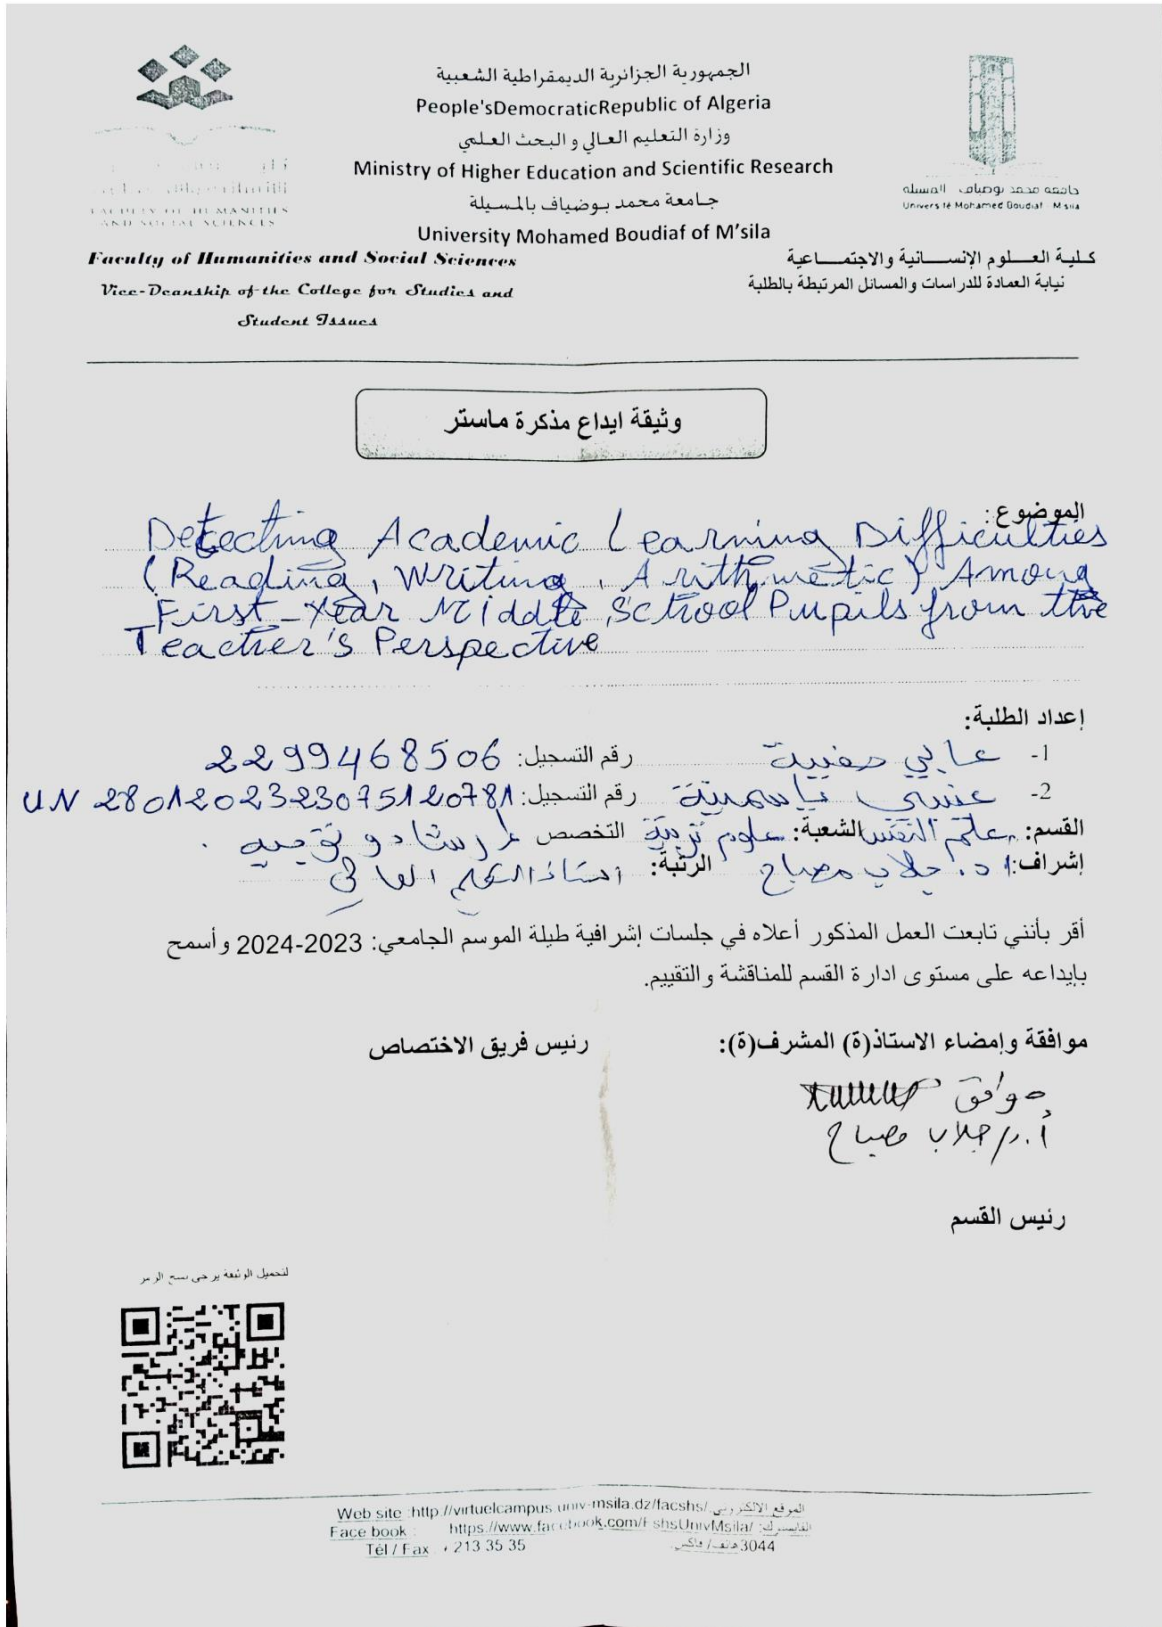 الجمهورية الجزائرية الديمقراطية الشعبية
People'sDemocraticRepublic of Algeria
وزارة التعليم العالي و البحث العلمي
Ministry of Higher Education and Scientific Research
جامعة محمد بوضياف بالمسيلة
University Mohamed Boudiaf of M'sila
FACULTY OF HUMANITIES
AND SOCIAL SCIENCES
جامعة محمد بوضياف - المسيلة
Université Mohamed Boudiaf - M'sila
Faculty of Humanities and Social Sciences
Vice-Deanship of the College for Studies and
Student Issues
كلية العلوم الإنسانية والاجتماعية
نيابة العمادة للدراسات والمسائل المرتبطة بالطلبة
وثيقة ايداع مذكرة ماستر
الموضوع:
Detecting Academic Learning Difficulties
(Reading, Writing, Arithmetic) Among
First-Year Middle School Pupils from the
Teacher's Perspective
إعداد الطلبة:
1- عابي صفيية رقم التسجيل: 2299468506
2- ياسمينة رقم التسجيل: UN 2801202323075120781
القسم: علم النفس الشعبة: علوم تربية التخصص إرشاد و توجيه .
إشراف: أ د. جلاب مصباح الرتبة: استاذ التعليم العالي
أقر بأنني تابعت العمل المذكور أعلاه في جلسات إشرافية طيلة الموسم الجامعي: 2023-2024 وأسمح
بإيداعه على مستوى ادارة القسم للمناقشة والتقييم.
موافقة وإمضاء الاستاذ(ة) المشرف(ة):
رئيس فريق الاختصاص
موافق
أ.د/ جلاب مصباح
رئيس القسم
لتحميل الوثيقة يرجى مسح الرمز
Web site :http://virtuelcampus.univ-msila.dz/facshs/ الموقع الالكتروني
Face book : https://www.facebook.com/FshsUnivMsila/ الفايسبوك:
Tél / Fax : +213 35 35 3044 هاتف/ فاكس